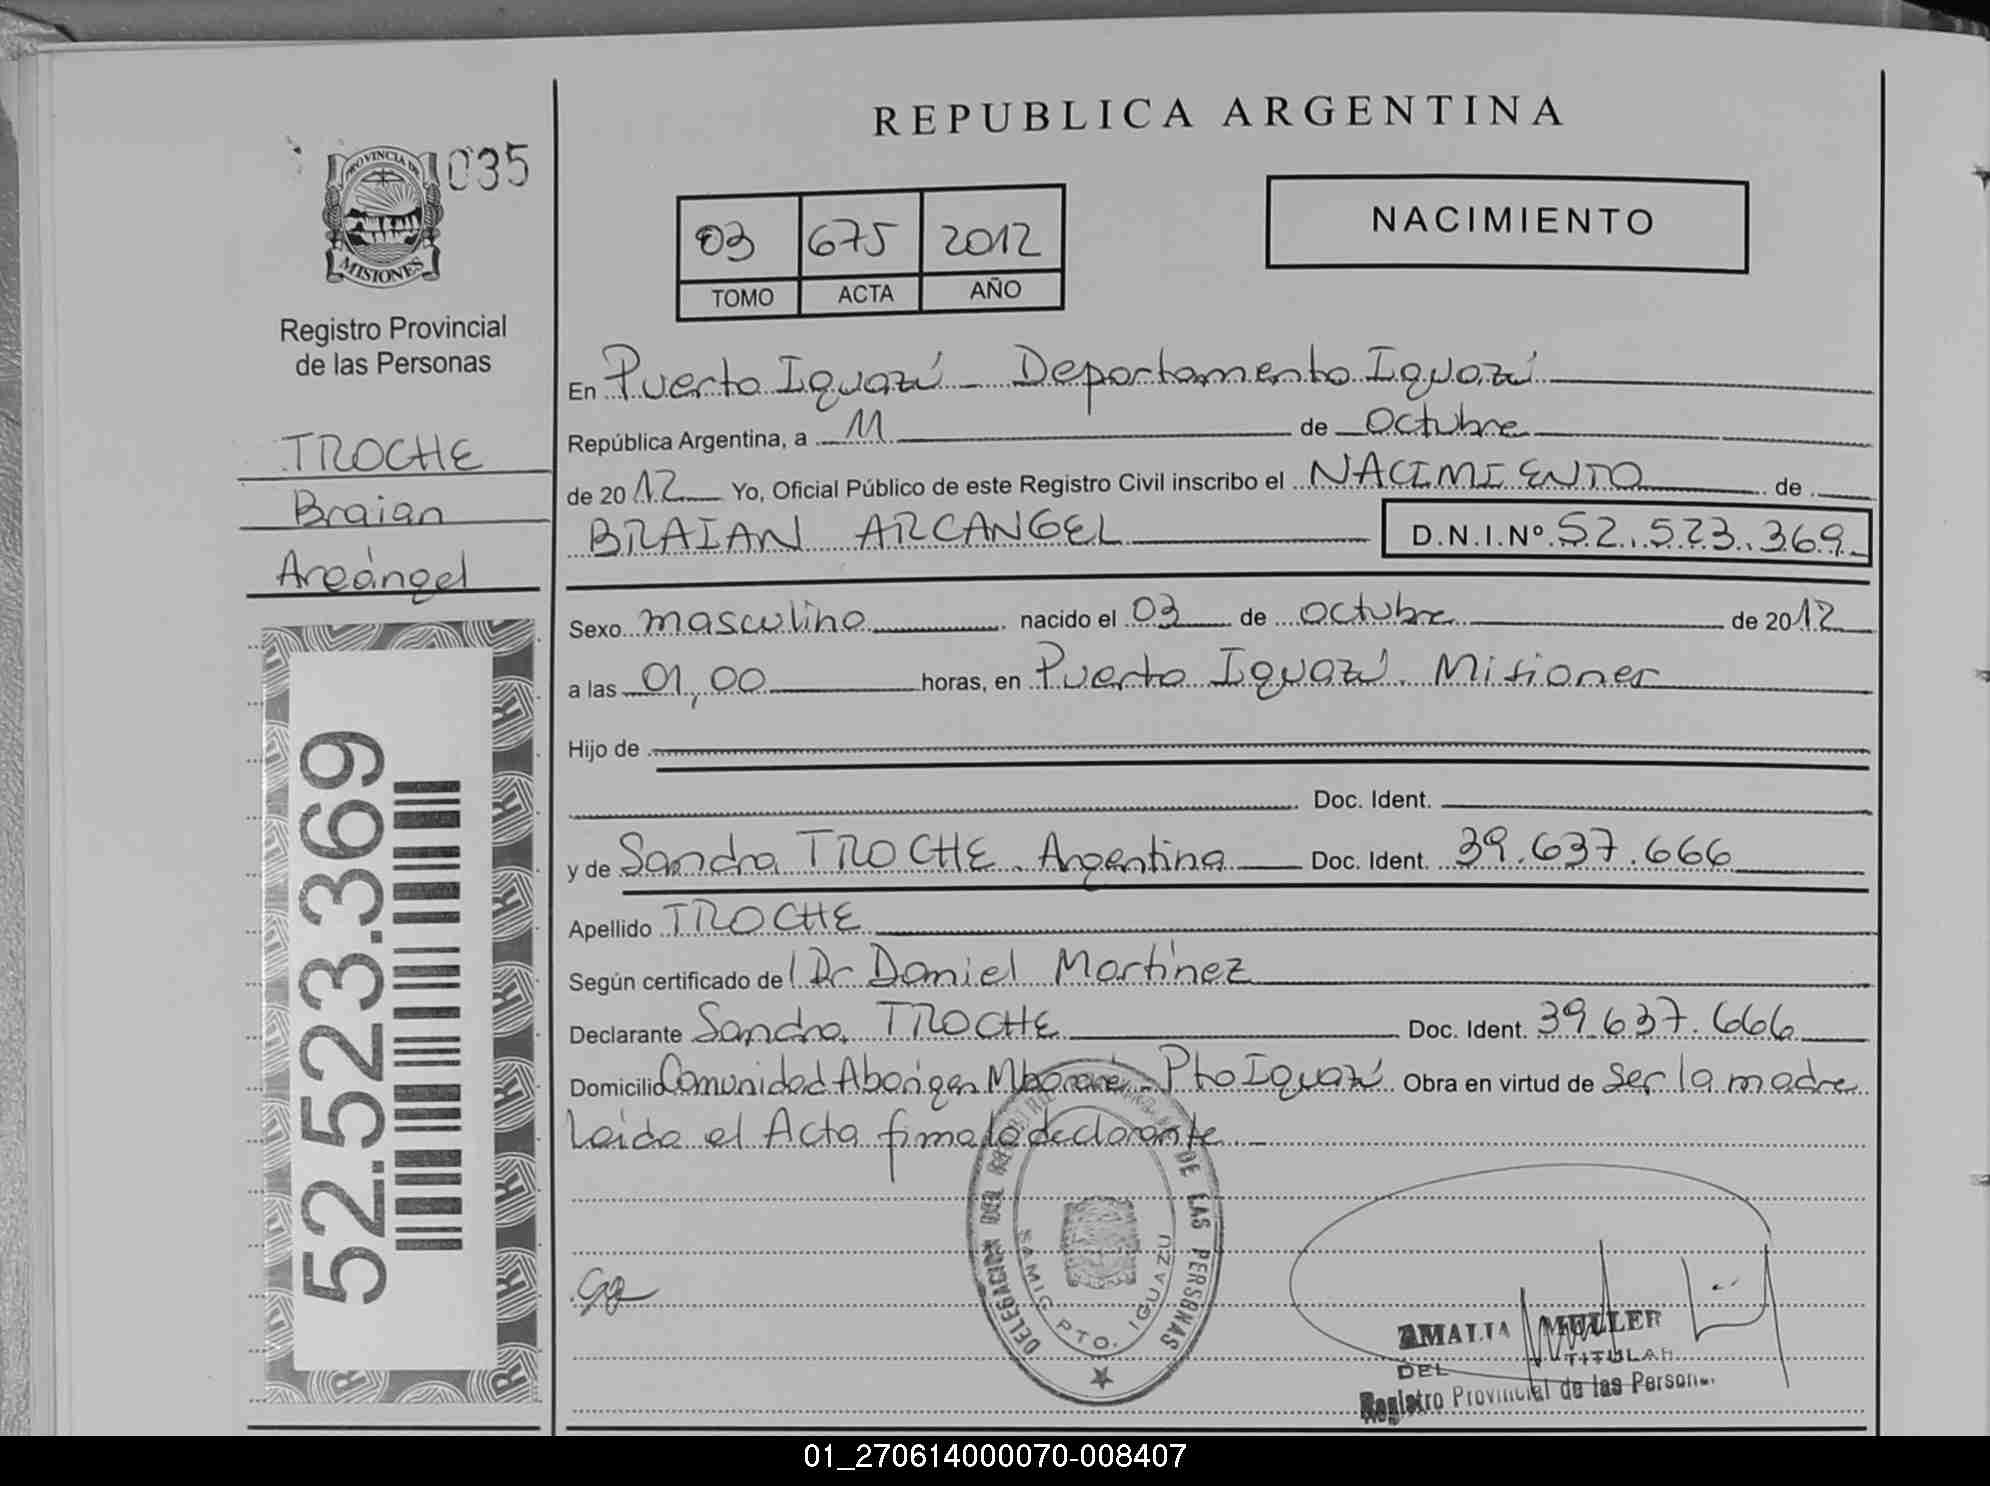 REPUBLICA ARGENTINA
035
PROVINCIA DE
MISIONES
Registro Provincial
de las Personas
TROCHE
Braian
Arcángel
52.523.369
NACIMIENTO
03 675 2012
TOMO ACTA AÑO
En Puerto Iguazú - Departamento Iguazú
República Argentina, a 11 de Octubre
de 2012 Yo, Oficial Público de este Registro Civil inscribo el NACIMIENTO de
BRAIAN ARCANGEL D.N.I.Nº 52.523.369
Sexo masculino nacido el 03 de octubre de 2012
a las 01,00 horas, en Puerto Iguazú. Misiones
Hijo de
Doc. Ident.
y de Sandra TROCHE. Argentina Doc. Ident. 39.637.666
Apellido TROCHE
Según certificado de Dr Daniel Martínez
Declarante Sandra TROCHE Doc. Ident. 39.637.666
Domicilio Comunidad Aborigen Mbororé - Pto Iguazú Obra en virtud de ser la madre
Leida el Acta firma la declarante
DELEGACION DEL REGISTRO DE LAS PERSONAS
SAMIC PTO. IGUAZU
AMALIA MULLER
TITULAR
DEL
Registro Provincial de las Person
01_270614000070-008407